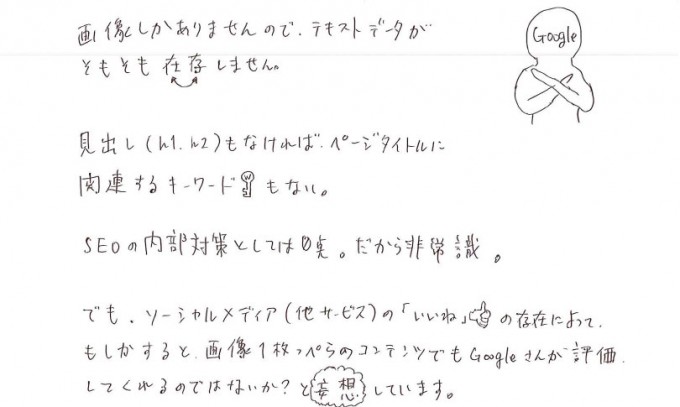 画像しかありませんので、テキストデータが
Google
そもそも在存しません。
見出し(h1.h2)もなければ、ページタイトルに
関連するキーワードもない。
SEOの内部対策としては0点。だから非常識。
でも、ソーシャルメディア(他サービス)の「いいね」の存在によって、
もしかすると、画像1枚っぺらのコンテンツでもGoogleさんが評価
してくれるのではないか?と妄想しています。